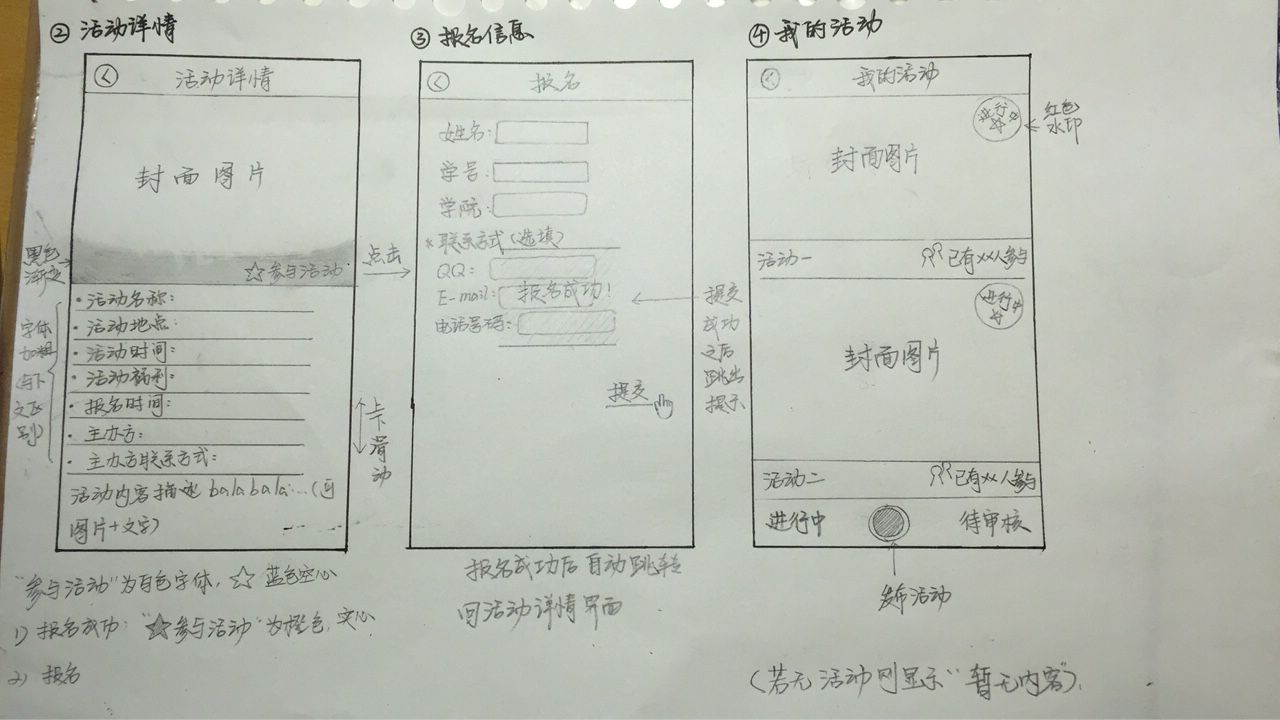 ② 活动详情
活动详情
封面图片
黑色
渐变
☆参与活动
点击
·活动名称：
·活动地点：
·活动时间：
·活动福利：
·报名时间：
·主办方：
·主办方联系方式：
活动内容描述balabala…(可
图片+文字)
字体
加粗
(与下
文区
别)
上下滑动
"参与活动"为白色字体，☆蓝色空心
1) 报名成功："☆参与活动"为橙色，实心
2) 报名
③ 报名信息
报名
姓名：
学号：
学院：
*联系方式(选填)
QQ：
E-mail：
报名成功！
电话号码：
提交
提交
成功
之后
跳出
提示
报名成功后自动跳转
回活动详情界面
④ 我的活动
我的活动
进行中
红色
水印
封面图片
活动一
已有XX人参与
进行中
封面图片
活动二
已有XX人参与
进行中
待审核
发布活动
(若无活动则显示"暂无内容").